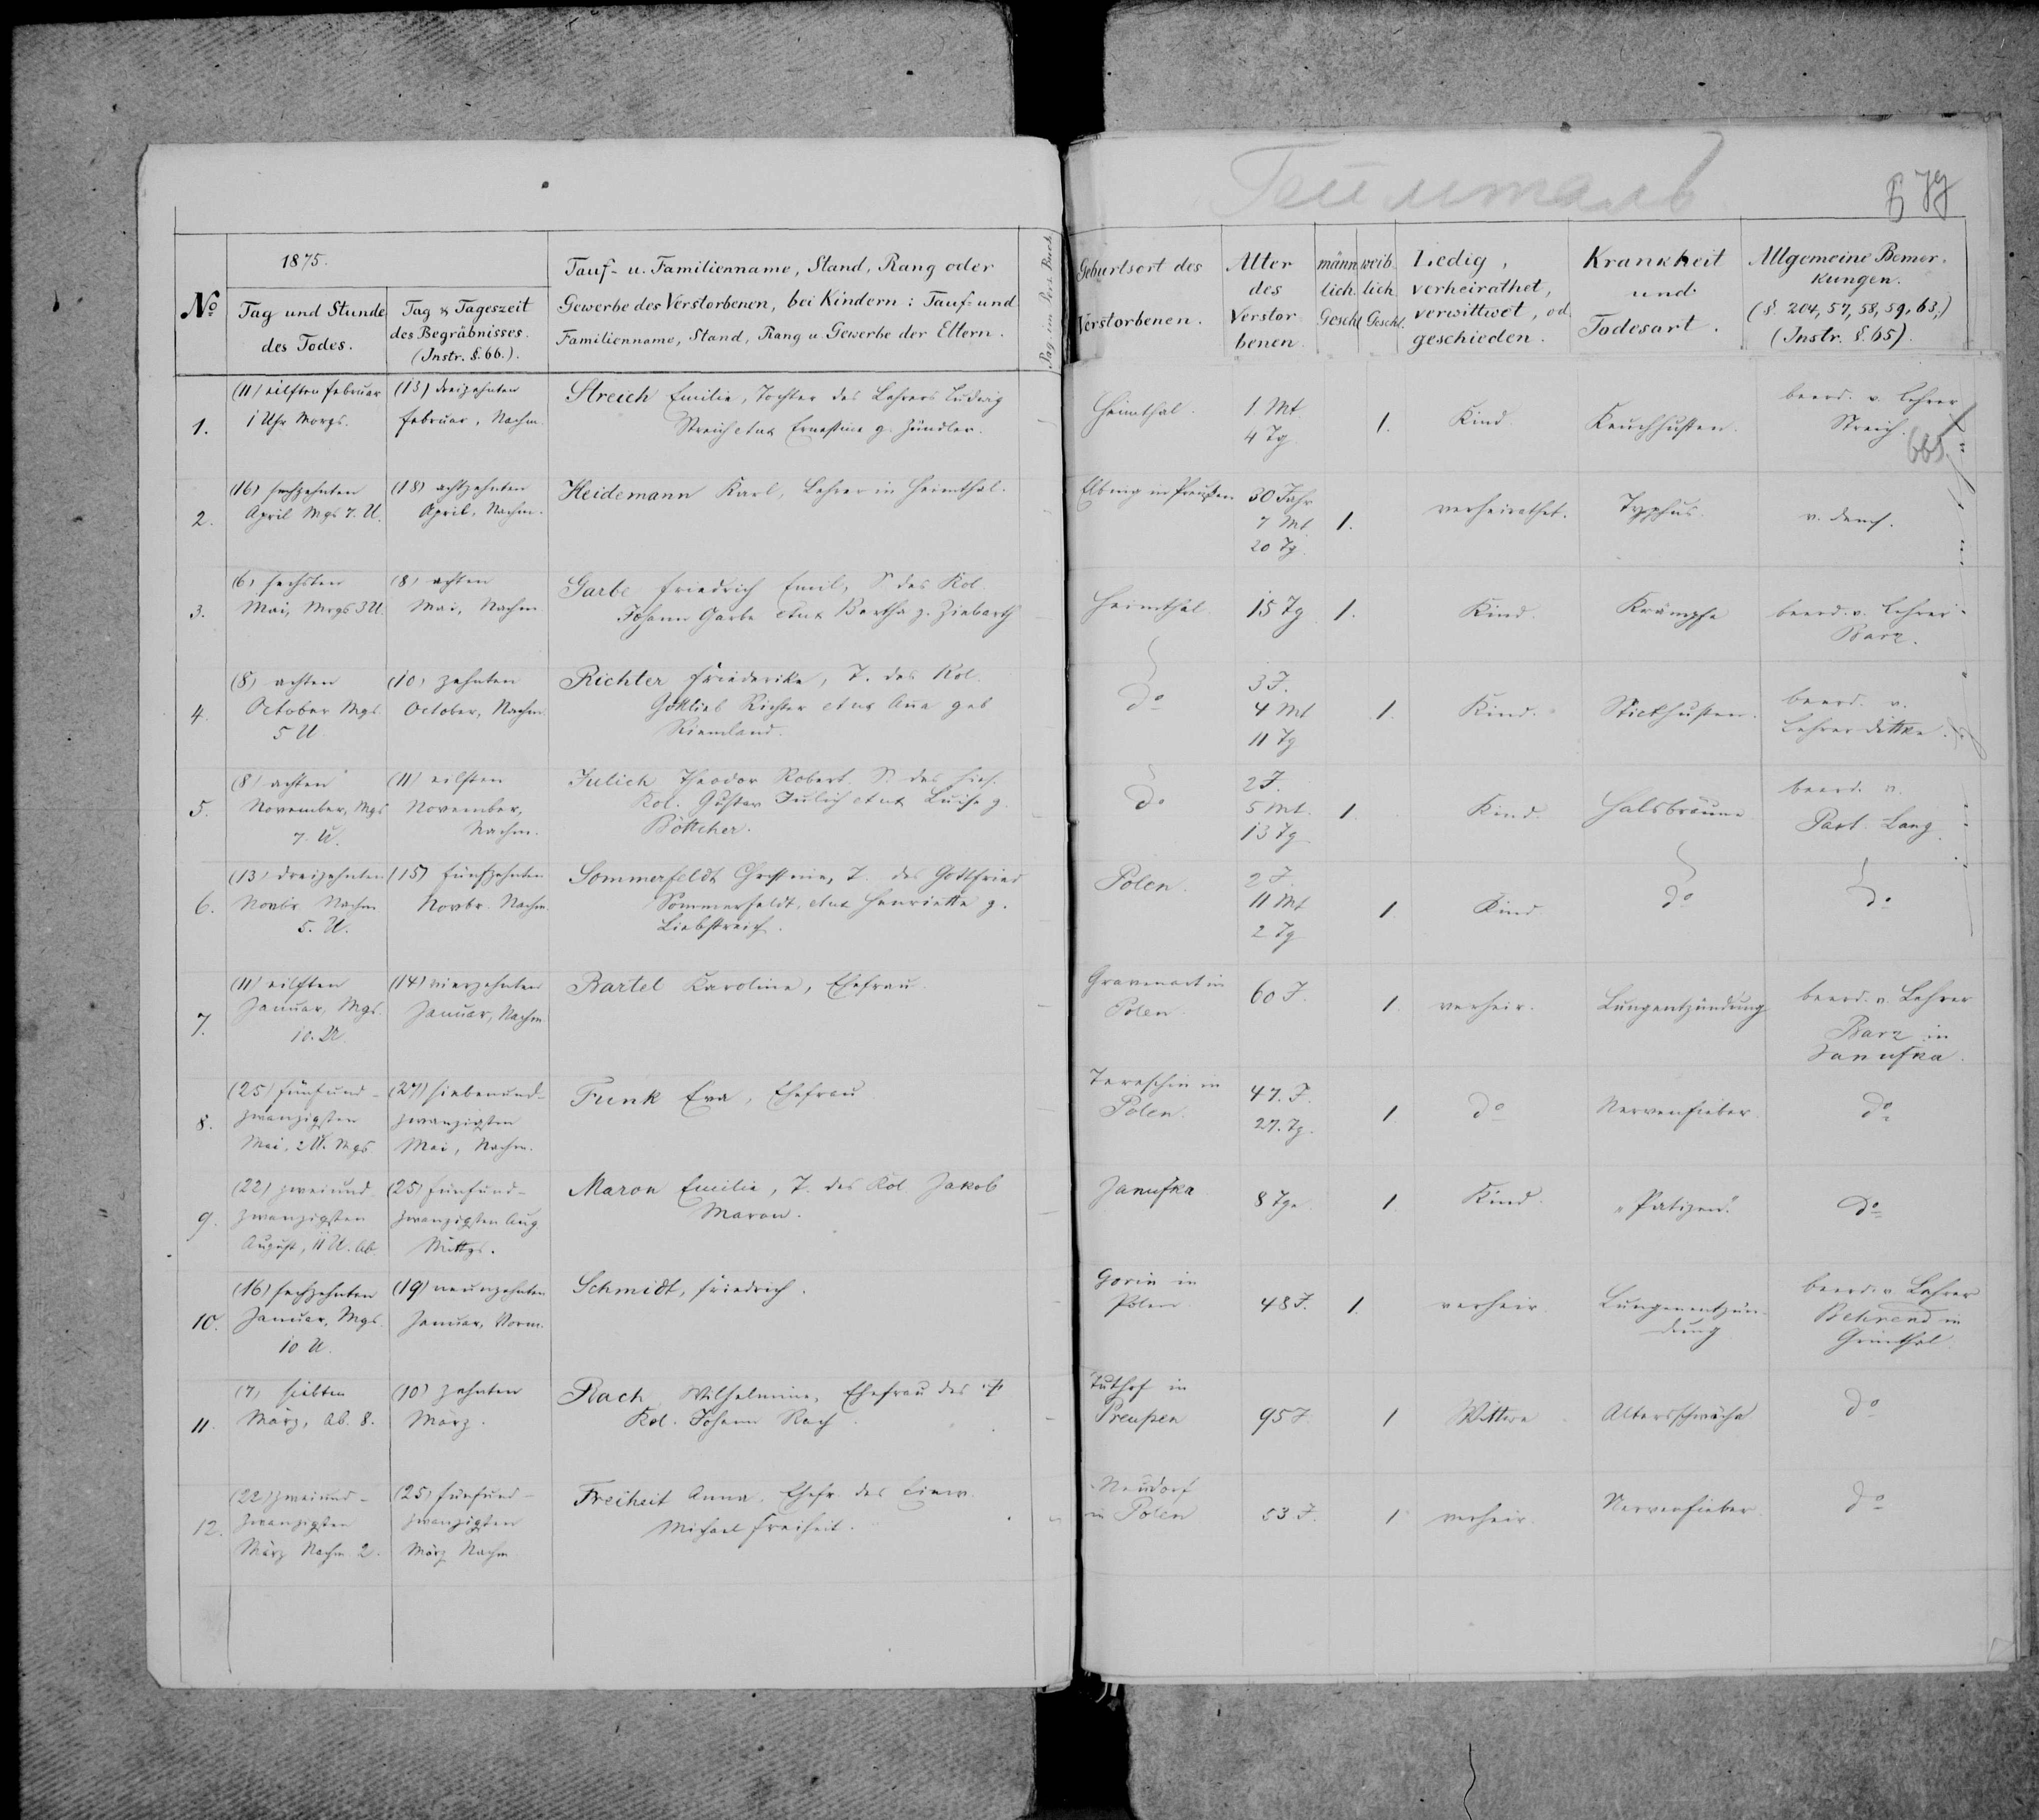 Геймталь
579
1875.
No
Tag und Stunde des Todes.
Tag & Tageszeit des Begräbnisses. (Instr. §. 66.).
Tauf- u. Familienname, Stand, Rang oder
Gewerbe des Verstorbenen, bei Kindern: Tauf- und
Familienname, Stand, Rang u. Gewerbe der Eltern.
Pag. im Pers. Buch
Geburtsort des Verstorbenen.
Alter des Verstorbenen.
männlich Geschl.
weiblich Geschl.
Ledig, verheirathet, verwittwet, od. geschieden.
Krankheit und Todesart.
Allgemeine Bemerkungen.
(§. 204, 57, 58, 59, 63,)
(Instr. §. 65).
1.
(11) eilften Februar
1 Uhr Morgs.
(13) dreizehnten
Februar, Nachm.
Streich Emilie, Tochter des Lehrers Ludwig
Streich et ux Ernestine g. Zündler.
Heimthal.
1 Mt
4 Tg.
1.
Kind.
Keuchhusten.
beerd. v. Lehrer
Streich.
665
2.
(16) sechzehnten
April Mgs 7. U.
(18) achtzehnten
April, Nachm.
Heidemann Karl, Lehrer in Heimthal.
Elbing in Preußen
30 Jahr
7 Mt
20 Tg.
1.
verheirathet.
Typhus.
v. dems.
3.
(6) sechsten
Mai, Mrgs 3 U.
(8) achten
Mai, Nachm
Garbe Friedrich Emil, S. des Kol.
Johann Garbe et ux Bertha g. Ziebarth
Heimthal
15 Tg
1.
Kind.
Krämpfe
beerd. v. Lehrer
Barz.
4.
(8) achten
October Mgs.
5 U.
(10) zehnten
October, Nachm.
Richter Friederike, T. des Kol.
Gottlieb Richter et ux Anna geb
Riemland.
do
3 J.
4 Mt
11 Tg
1.
Kind.
Stickhusten.
beerd. v.
Lehrer Dittke.
5.
(8) achten
November, Mgs
7. U.
(11) eilften
November,
Nachm.
Julich Theodor Robert. S. des hies.
Kol. Gustav Julich et ux Luise g.
Böttcher.
do
2 J.
5 Mt.
13 Tg
1.
Kind.
Halsbräune
beerd. v.
Past. Lang
6.
(13) dreizehnten
Novbr. Nachm
5. U.
(15) fünfzehnten
Novbr. Nachm.
Sommerfeldt T. des Gottfried
Sommerfeldt, et ux Henriette g.
Liebstreich.
Polen.
2 J.
11 Mt
2 Tg
1
Kind
do
do
7.
(11) eilften
Januar, Mgs.
10. U.
(14) vierzehnten
Januar, Nachm
Bartel Karoline, Ehefrau
Gravenort in
Polen.
60 J.
1.
verheir.
Lungentzündung
beerd. v. Lehrer
Barz in
Januska.
8.
(25) fünfund-
zwanzigsten
Mai, 2 U. Mgs
(27) siebenund-
zwanzigsten
Mai, Nachm.
Funk Eva, Ehefrau
Tereschin in
Polen.
47. J.
27. Tg.
1
do
Nervenfieber
do
9.
(22) zweiund
zwanzigsten
August, 11 U. Ab.
(25) fünfund-
zwanzigsten Aug
Mittgs.
Maron Emilie, T. des Kol. Jakob
Maron.
Januska
8 Tge.
1
Kind.
do
10.
(16) sechzehnten
Januar, Mgs.
10 U.
(19) neunzehnten
Januar, Vorm.
Schmidt, Friedrich.
Gorin in
Polen
48 J.
1.
verheir.
Lungenentzün-
dung
beerd. v. Lehrer
Behrend in
Grünthal.
11.
(7) siebten
März, Ab. 8.
(10) zehnten
März.
Rach Wilhelmine, Ehefrau des
Kol. Johann Rach.
in
Preußen
95 J.
1
Wittwe
Altersschwäche
do
12.
(22) zweiund-
zwanzigsten
März Nachm. 2.
(25) fünfund-
zwanzigsten
März Nachm.
Freiheit Anna, Ehefr. des Einw.
Michael Freiheit.
Neudorf
in Polen
53 J.
1
verheir.
Nervenfieber
do